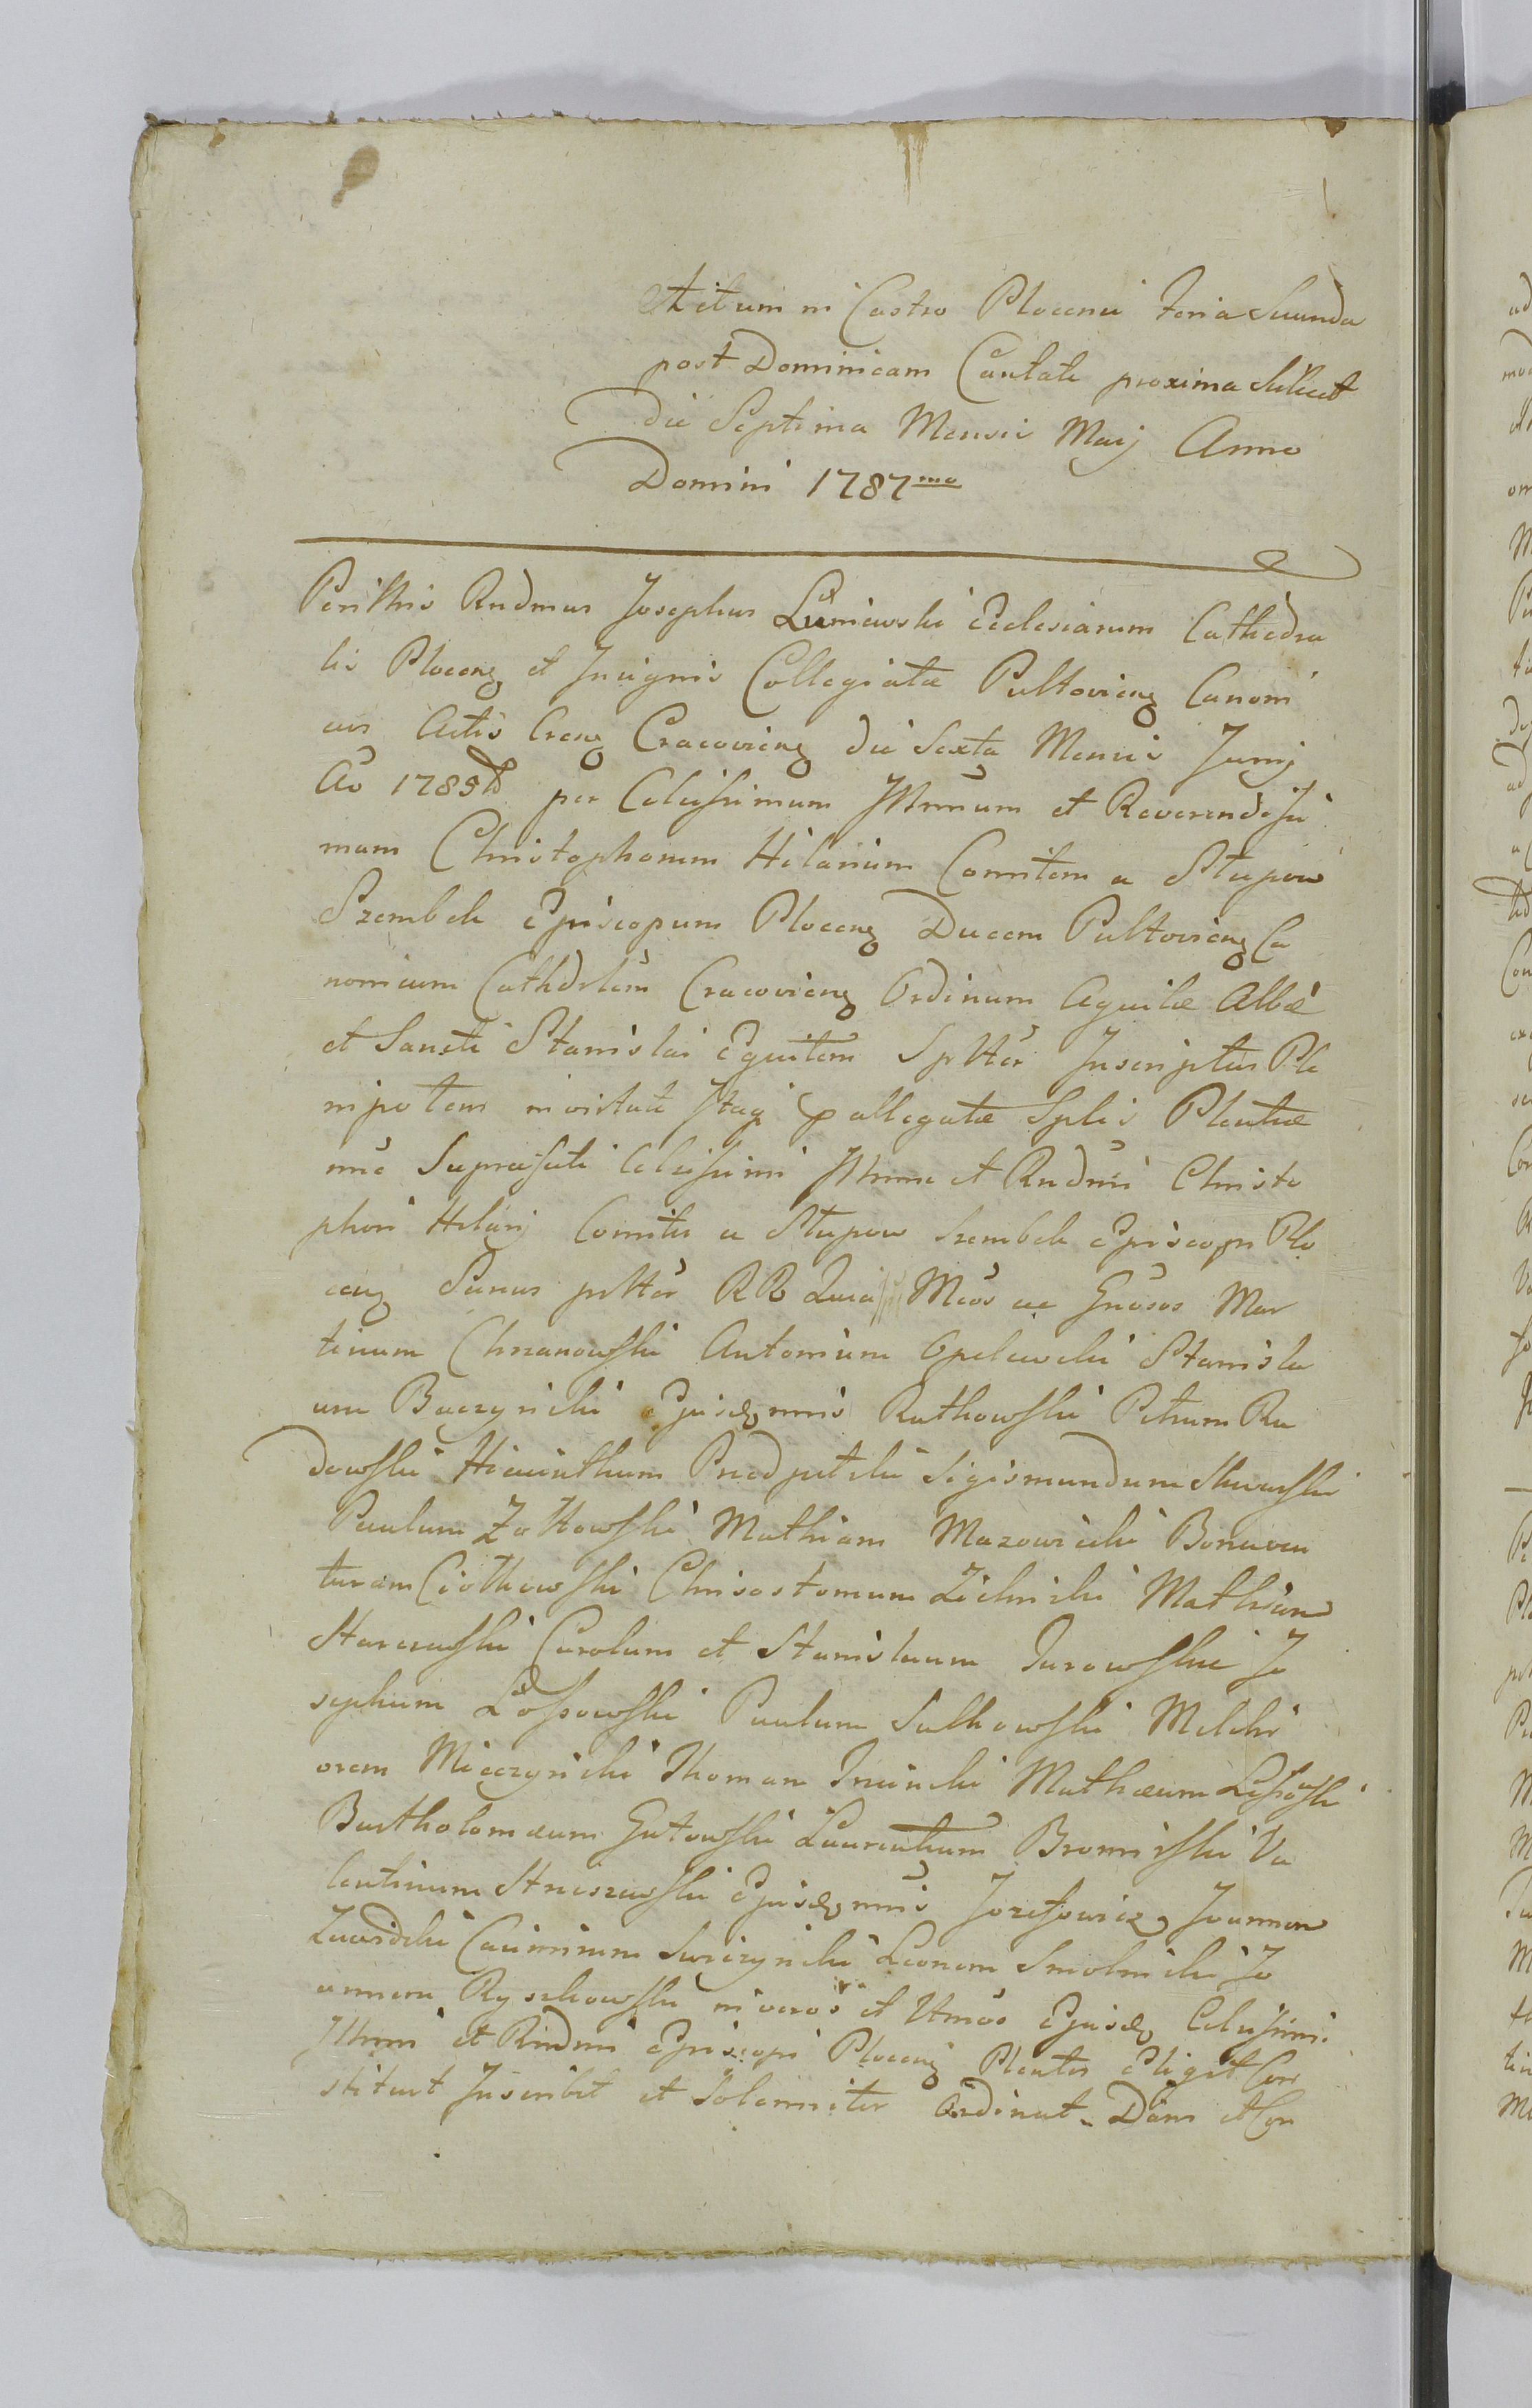 Actum in Castro Plocensi Feria Secunda
post Dominicam Cantate proxima Scilicet
die Septima Mensis Maij Anno
Domini 1787mo
Perillris Rndmus Josephus Luniewski Ecclesiarum Cathedra
lis Plocens et Insignis Collegiatæ Pultoviens Canoni
cus Actis Crens Cracoviens die Sexta Mensis Junij
Ao 1785to per Celsissimum Illmum et Reverendissi
mum Christophorum Hilarium Comitem a Słupow
Szembek Episcopum Plocens Ducem Pultoviens Ca
nonicum Cathdrlem Cracoviens Ordinum Aquilæ Albæ
et Sancti Stanislai Equitem Spltter Inscriptus Ple
nipotens in virtute Itaq allegatæ Splis Plentiæ
nnè Suprafati Celsissimi Illmi et Rndmi Christo
phori Hilarij Comitis a Słupow Szembek Episcopi Plo
cens Sanus prltter RR Meos ac Gnosos Mar
tinum Chrzanowski Antonium Opelewski Stanisla
um Buczynski Ejusdnnis Rutkowski Petrum Ra
dowski Hiacinthum Sigismundum
Paulum Zołtowski Mathiam Mazowiecki Bonaven
turam Ciołkowski Chrisostomum Zielinski Mathiam
Carolum et Stanislaum Jurowskie Jo
sephum Łossowski Paulum Sulkowski Melchi
orem Mieczynski Thomam Mathæum
Bartholomæum Gutowski Laurentium Bromirski Va
lentinum Ejusdnnis Jozefowicz Joannem
Zawidzki Casimirum Swiezynski Leonem Smolinski Jo
annem Ryszkowski in veros et Ltmos Ejusd Celsissimi
Illmi et Rndmi Episcopi Plocens Plentes Eligit Con
stituit Inscribit et Solemniter Ordinat. Dans et Con